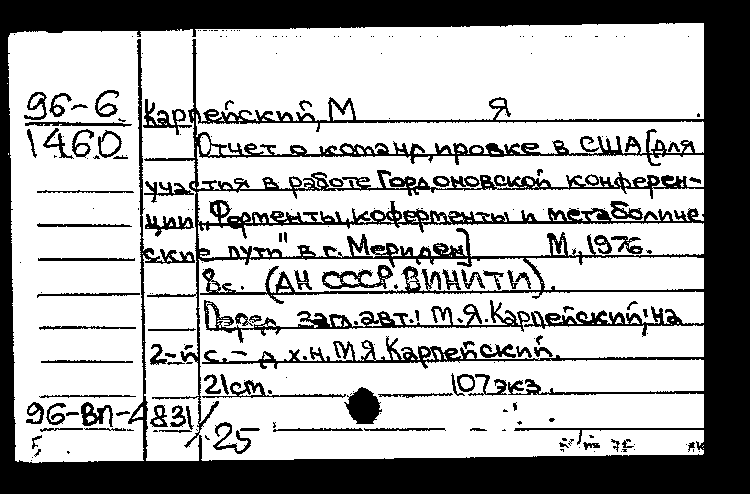 96-6 Карпейский, М Я
1460 Отчет о командировке в США [для
участия в работе Гордоновской конферен-
ции „Ферменты, коферменты и метаболиче-
ские пути" в г. Мериден]. М., 1976.
8с. (АН СССР. ВИНИТИ).
Перед загл. авт.: М.Я. Карпейский; на
2-й с. – д.х.н. М.Я. Карпейский.
21см. 107 экз.
96-ВП-4831/25
5